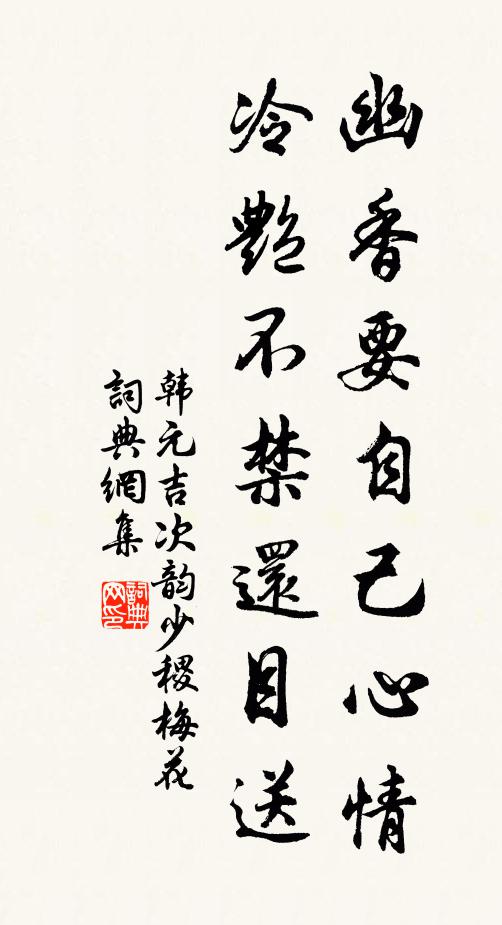 幽香要自己心情
冷艷不禁還目送
韩元吉次韵少稷梅花
詞典網集
詞典网印